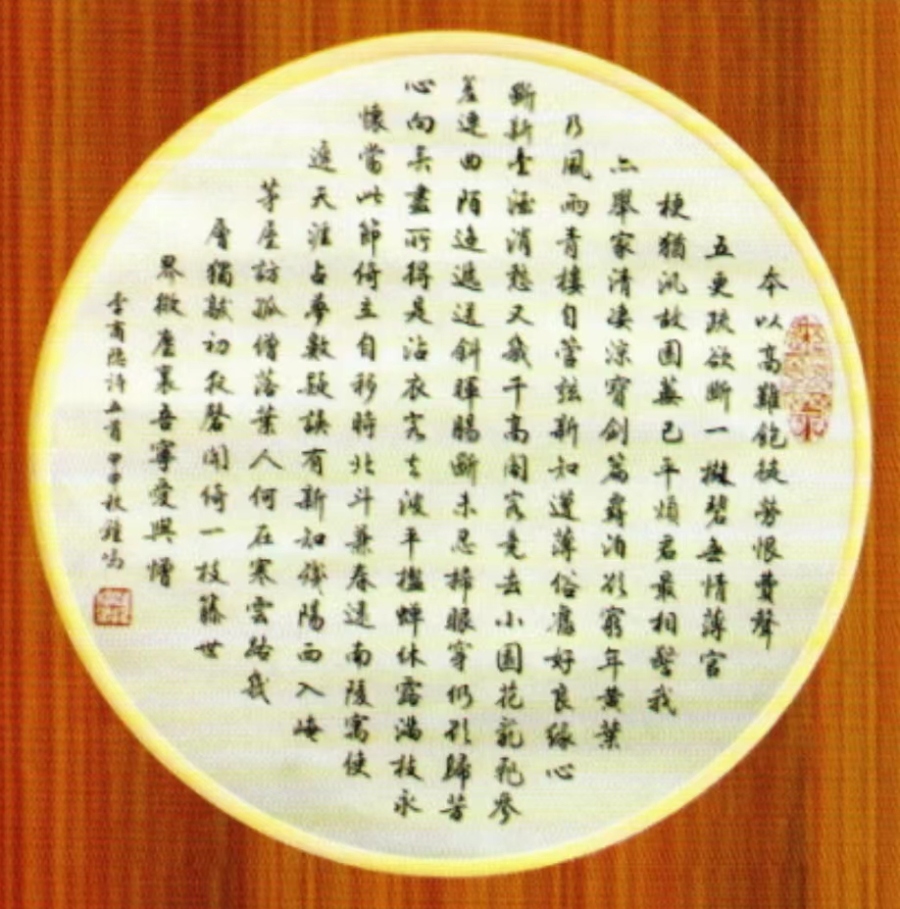 本以高難飽徒勞恨費聲
五更疏欲斷一樹碧無情薄宦
梗猶汎故園蕪已平煩君最相警我
亦舉家清凄涼寶劍篇羇泊欲窮年黃葉
乃風雨青樓自管弦新知遭薄俗舊好良緣心
斷新豐酒消愁又幾千高閣客竟去小園花亂飛參
差連曲陌迢遞送斜暉腸斷未忍掃眼穿仍欲歸芳
心向春盡所得是沾衣客去波平檻蟬休露滿枝永
懷當此節倚立自移時北斗兼春遠南陵寓使
遲天涯占夢數疑誤有新知殘陽西入崦
茅屋訪孤僧落葉人何在寒雲路幾
層獨敲初夜磬閒倚一枝藤世
界微塵裏吾寧愛與憎
李商隱詩五首甲申秋鍾鳴